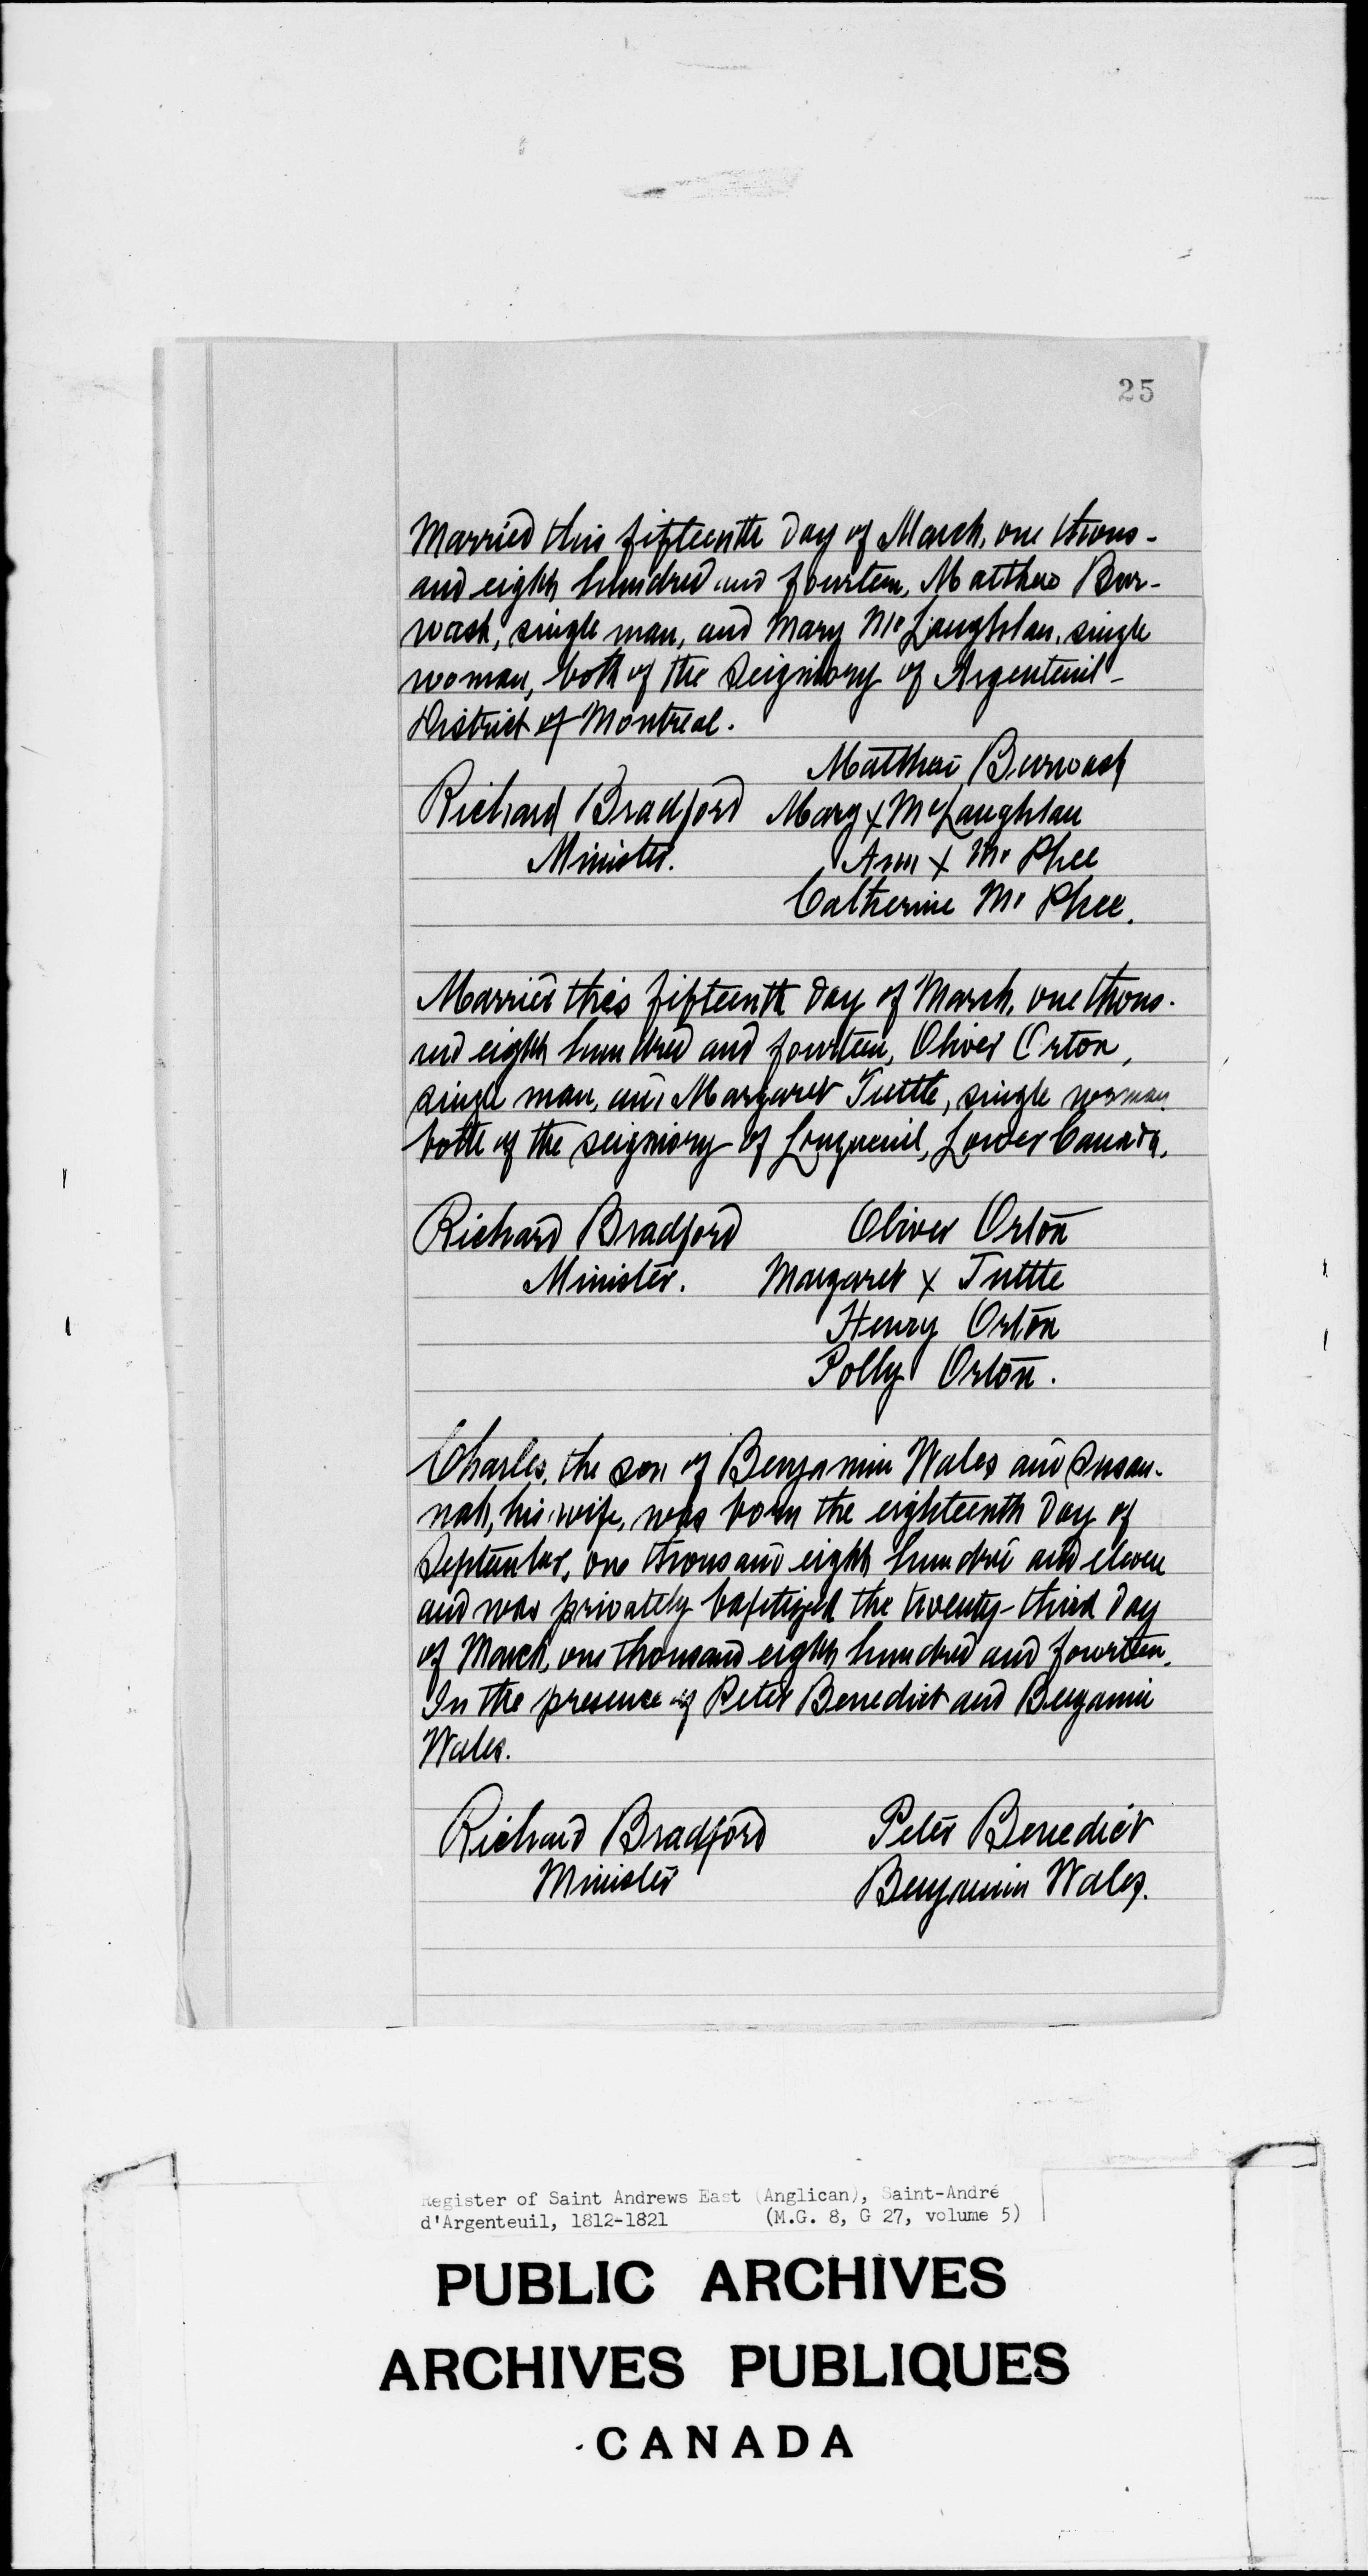 25
Married this fifteenth day of March, one thous-
and eight hundred and fourteen, Matthew Bur-
wash, single man, and Mary McLaughlan, single
woman, both of the Seigniory of Argenteuil-
District of Montreal.
Matthew Burwash
Richard Bradford Mary x McLaughlan
Minister. Ann x McPhee
Catherine McPhee.
Married this fifteenth day of March, one thous-
and eight hundred and fourteen, Oliver Orton,
single man, and Margaret Tuttle, single woman
both of the seigniory of Longueuil, Lower Canada.
Richard Bradford Oliver Orton
Minister. Margaret x Tuttle
Henry Orton
Polly Orton.
Charles, the son of Benjamin Wales and Susan-
nah, his wife, was born the eighteenth day of
September, one thousand eight hundred and eleven
and was privately baptized the twenty-third day
of March, one thousand eight hundred and fourteen.
In the presence of Peter Benedict and Benjamin
Wales.
Richard Bradford Peter Benedict
Minister Benjamin Wales.
Register of Saint Andrews East (Anglican), Saint-André
d'Argenteuil, 1812-1821 (M.G. 8, G 27, volume 5)
PUBLIC ARCHIVES
ARCHIVES PUBLIQUES
CANADA